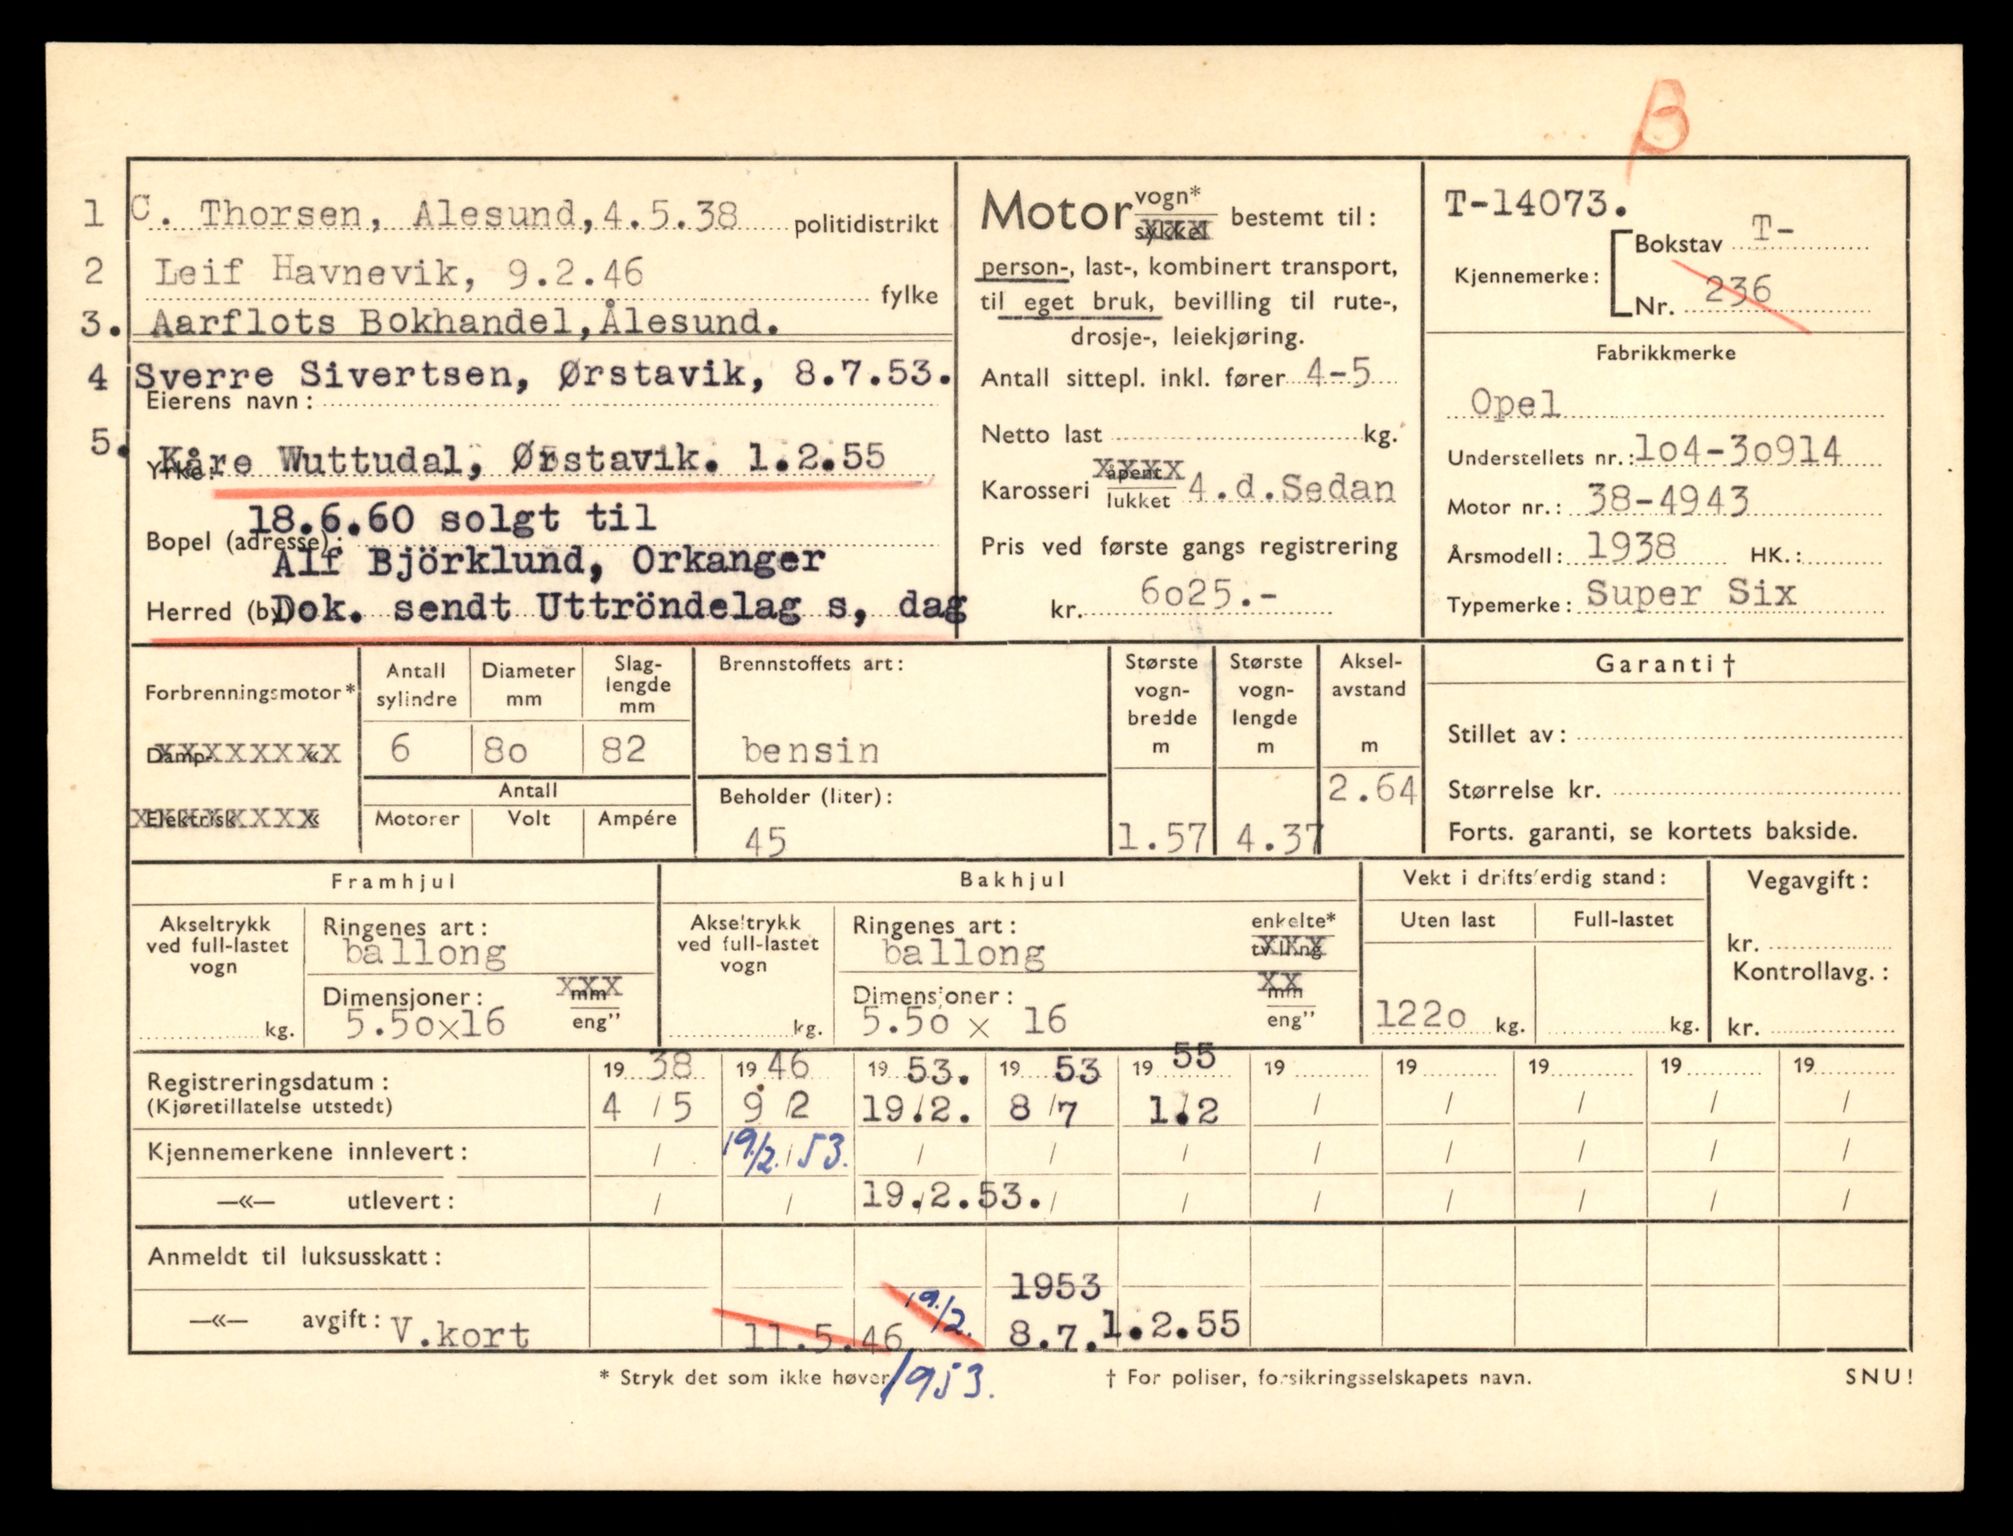 B
1 C. Thorsen, Alesund, 4.5.38 politidistrikt
2 Leif Havnevik, 9.2.46 fylke
3. Aarflots Bokhandel, Ålesund.
4 Sverre Sivertsen, Ørstavik, 8.7.53.
Eierens navn:
5. Kåre Wuttudal, Ørstavik. 1.2.55
Yrke:
18.6.60 solgt til
Bopel (adresse):
Alf Björklund, Orkanger
Herred (by) Dok. sendt Uttröndelag s, dag
Motor vogn* sykkel bestemt til:
person-, last-, kombinert transport,
til eget bruk, bevilling til rute-,
drosje-, leiekjøring.
Antall sittepl. inkl. fører 4-5
Netto last kg.
Karosseri åpent lukket 4.d.Sedan
Pris ved første gangs registrering
kr. 6025.-
T-14073.
Kjennemerke: Bokstav T-
Nr. 236
Fabrikkmerke
Opel
Understellets nr.: 1o4-3o914
Motor nr.: 38-4943
Årsmodell: 1938 HK.:
Typemerke: Super Six
Forbrenningsmotor*
Damp- «
Elektrisk «
Antall sylindre
6
Diameter mm
80
Slag-lengde mm
82
Antall
Motorer Volt Ampére
Brennstoffets art:
bensin
Beholder (liter):
45
Største vogn-bredde m
1.57
Største vogn-lengde m
4.37
Aksel-avstand m
2.64
Garanti †
Stillet av:
Størrelse kr.
Forts. garanti, se kortets bakside.
Framhjul
Akseltrykk ved full-lastet vogn
kg.
Ringenes art:
ballong
Dimensjoner: mm
5.50x16 eng"
Bakhjul
Akseltrykk ved full-lastet vogn
kg.
Ringenes art: enkelte*
ballong tvilling
Dimensjoner: mm
5.50 x 16 eng"
Vekt i driftsferdig stand:
Uten last Full-lastet
1220 kg. kg.
Vegavgift:
kr.
Kontrollavg.:
kr.
Registreringsdatum: 19 38 19 46 19 53. 19 53 19 55 19 19 19 19 19
(Kjøretillatelse utstedt) 4 / 5 9 / 2 19./2. 8 / 7 1./2 / / / / /
Kjennemerkene innlevert: / 19./2. / 53. / / / / / / / /
—«— utlevert: / / 19.2.53. / / / / / / /
Anmeldt til luksusskatt:
1953
—«— avgift: V.kort 11.5.46 19./2. 8.7. 1.2.55
* Stryk det som ikke høver 1953. † For poliser, forsikringsselskapets navn. SNU!